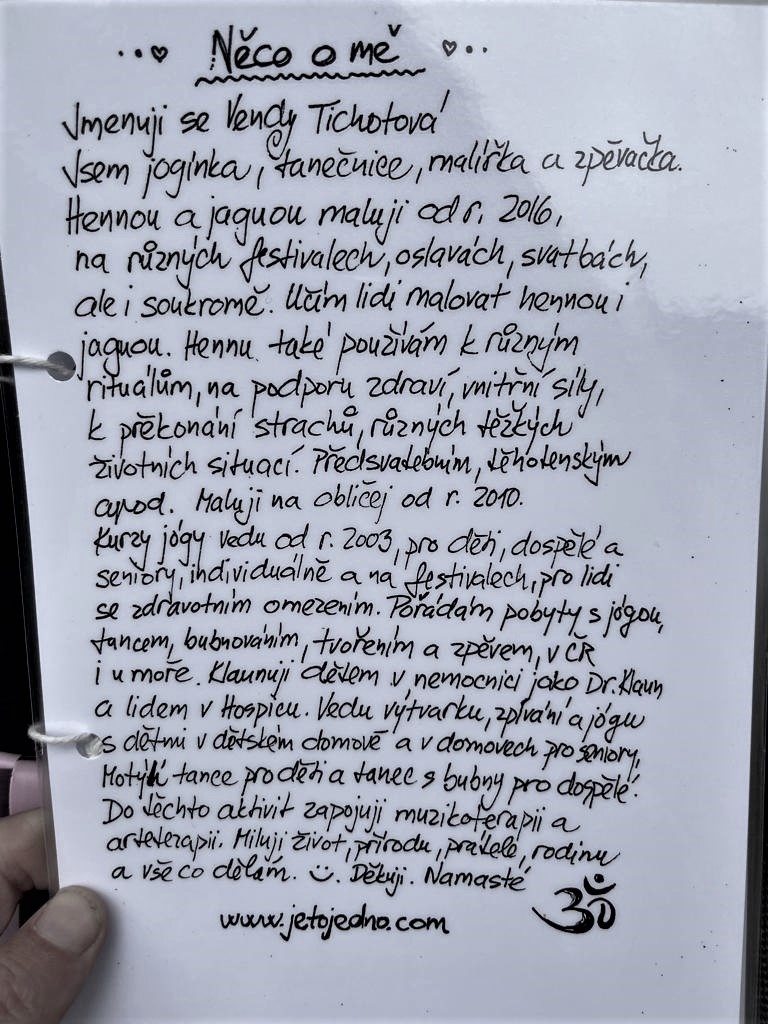 Něco o mě
Jmenuji se Vendy Tichotová
Jsem joginka, tanečnice, malířka a zpěvačka.
Hennou a jaguou maluji od r. 2016,
na různých festivalech, oslavách, svatbách,
ale i soukromě. Učím lidi malovat hennou i
jaguou. Hennu také používám k různým
rituálům, na podporu zdraví, vnitřní síly,
k překonání strachů, různých těžkých
životních situací. Předsvatebním, těhotenským
apod. Maluji na obličej od r. 2010.
Kurzy jógy vedu od r. 2003, pro děti, dospělé a
seniory, individuálně a na festivalech, pro lidi
se zdravotním omezením. Pořádám pobyty s jógou,
tancem, bubnováním, tvořením a zpěvem, v ČR
i u moře. Klaunuji dětem v nemocnici jako Dr. Klaun
a lidem v Hospicu. Vedu výtvarku, zpívání a jógu
s dětmi v dětském domově a v domovech pro seniory,
Motýlí tance pro děti a tanec s bubny pro dospělé.
Do těchto aktivit zapojuji muzikoterapii a
arteterapii. Miluji život, přírodu, přátelé, rodinu
a vše co dělám. Děkuji. Namasté
ॐ
www.jetojedno.com